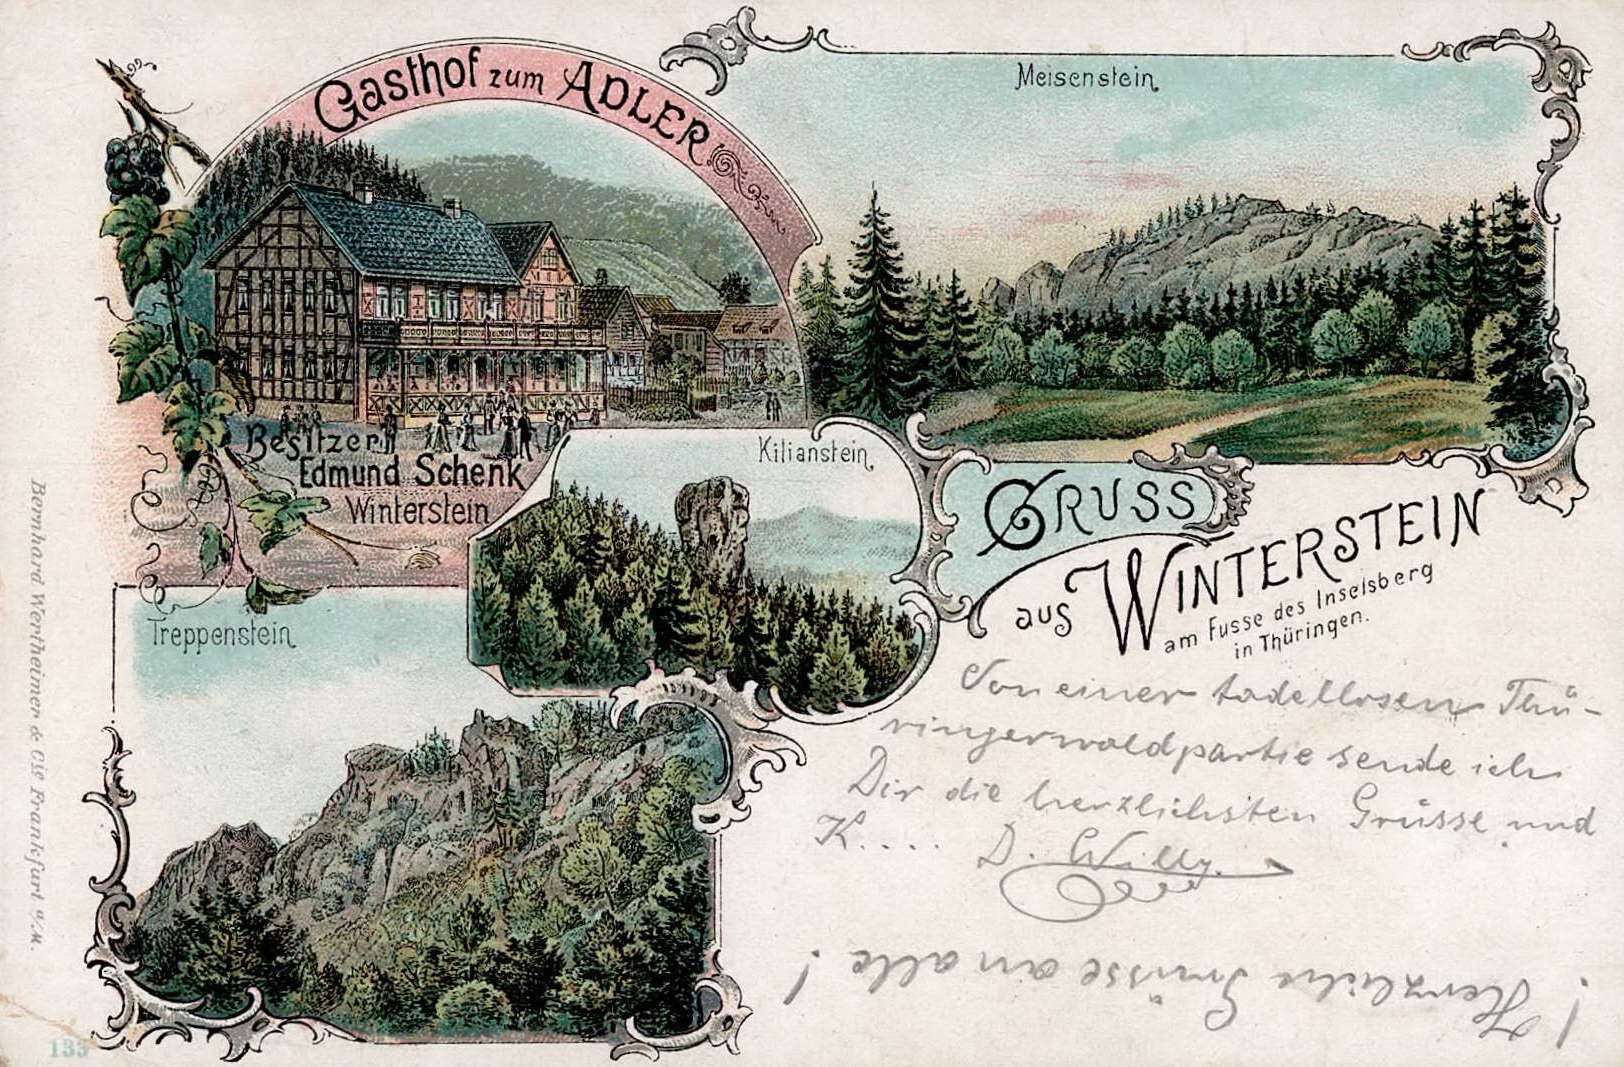 Gasthof zum ADLER
Meisenstein
Besitzer
Edmund Schenk
Winterstein
Kilianstein
GRUSS
aus WINTERSTEIN
am Fusse des Inselsberg
in Thüringen.
Treppenstein
Von einer tadellosen Thü-
ringerwaldpartie sende ich
Dir die herzlichsten Grüsse und
K.... D. Willy.
! Herzliche Grüsse an alle !
Bernhard Wertheimer & Cie Frankfurt a/M.
135